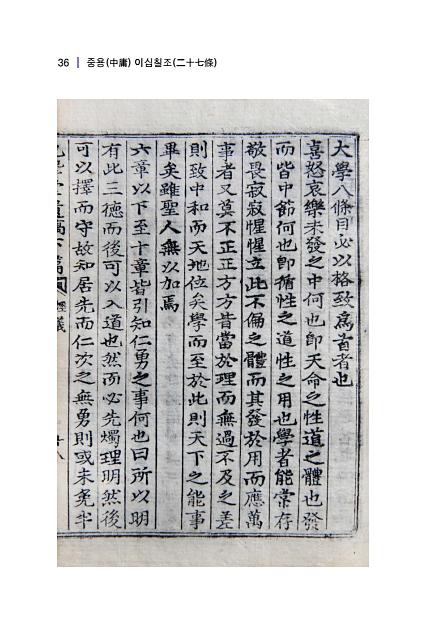 36 | 중용(中庸) 이십칠조(二十七條)
大學八條目必以格致爲首者也
喜怒哀樂未發之中何也卽天命之性道之體也發
而皆中節何也卽循性之道性之用也學者能常存
敬畏寂寂惺惺立此不偏之體而其發於用而應萬
事者又莫不正正方方皆當於理而無過不及之差
則致中和而天地位矣學而至於此則天下之能事
畢矣雖聖人無以加焉
六章以下至十章皆引知仁勇之事何也曰所以明
有此三德而後可以入道也然而必先燭理明然後
可以擇而守故知居先而仁次之無勇則或未免半